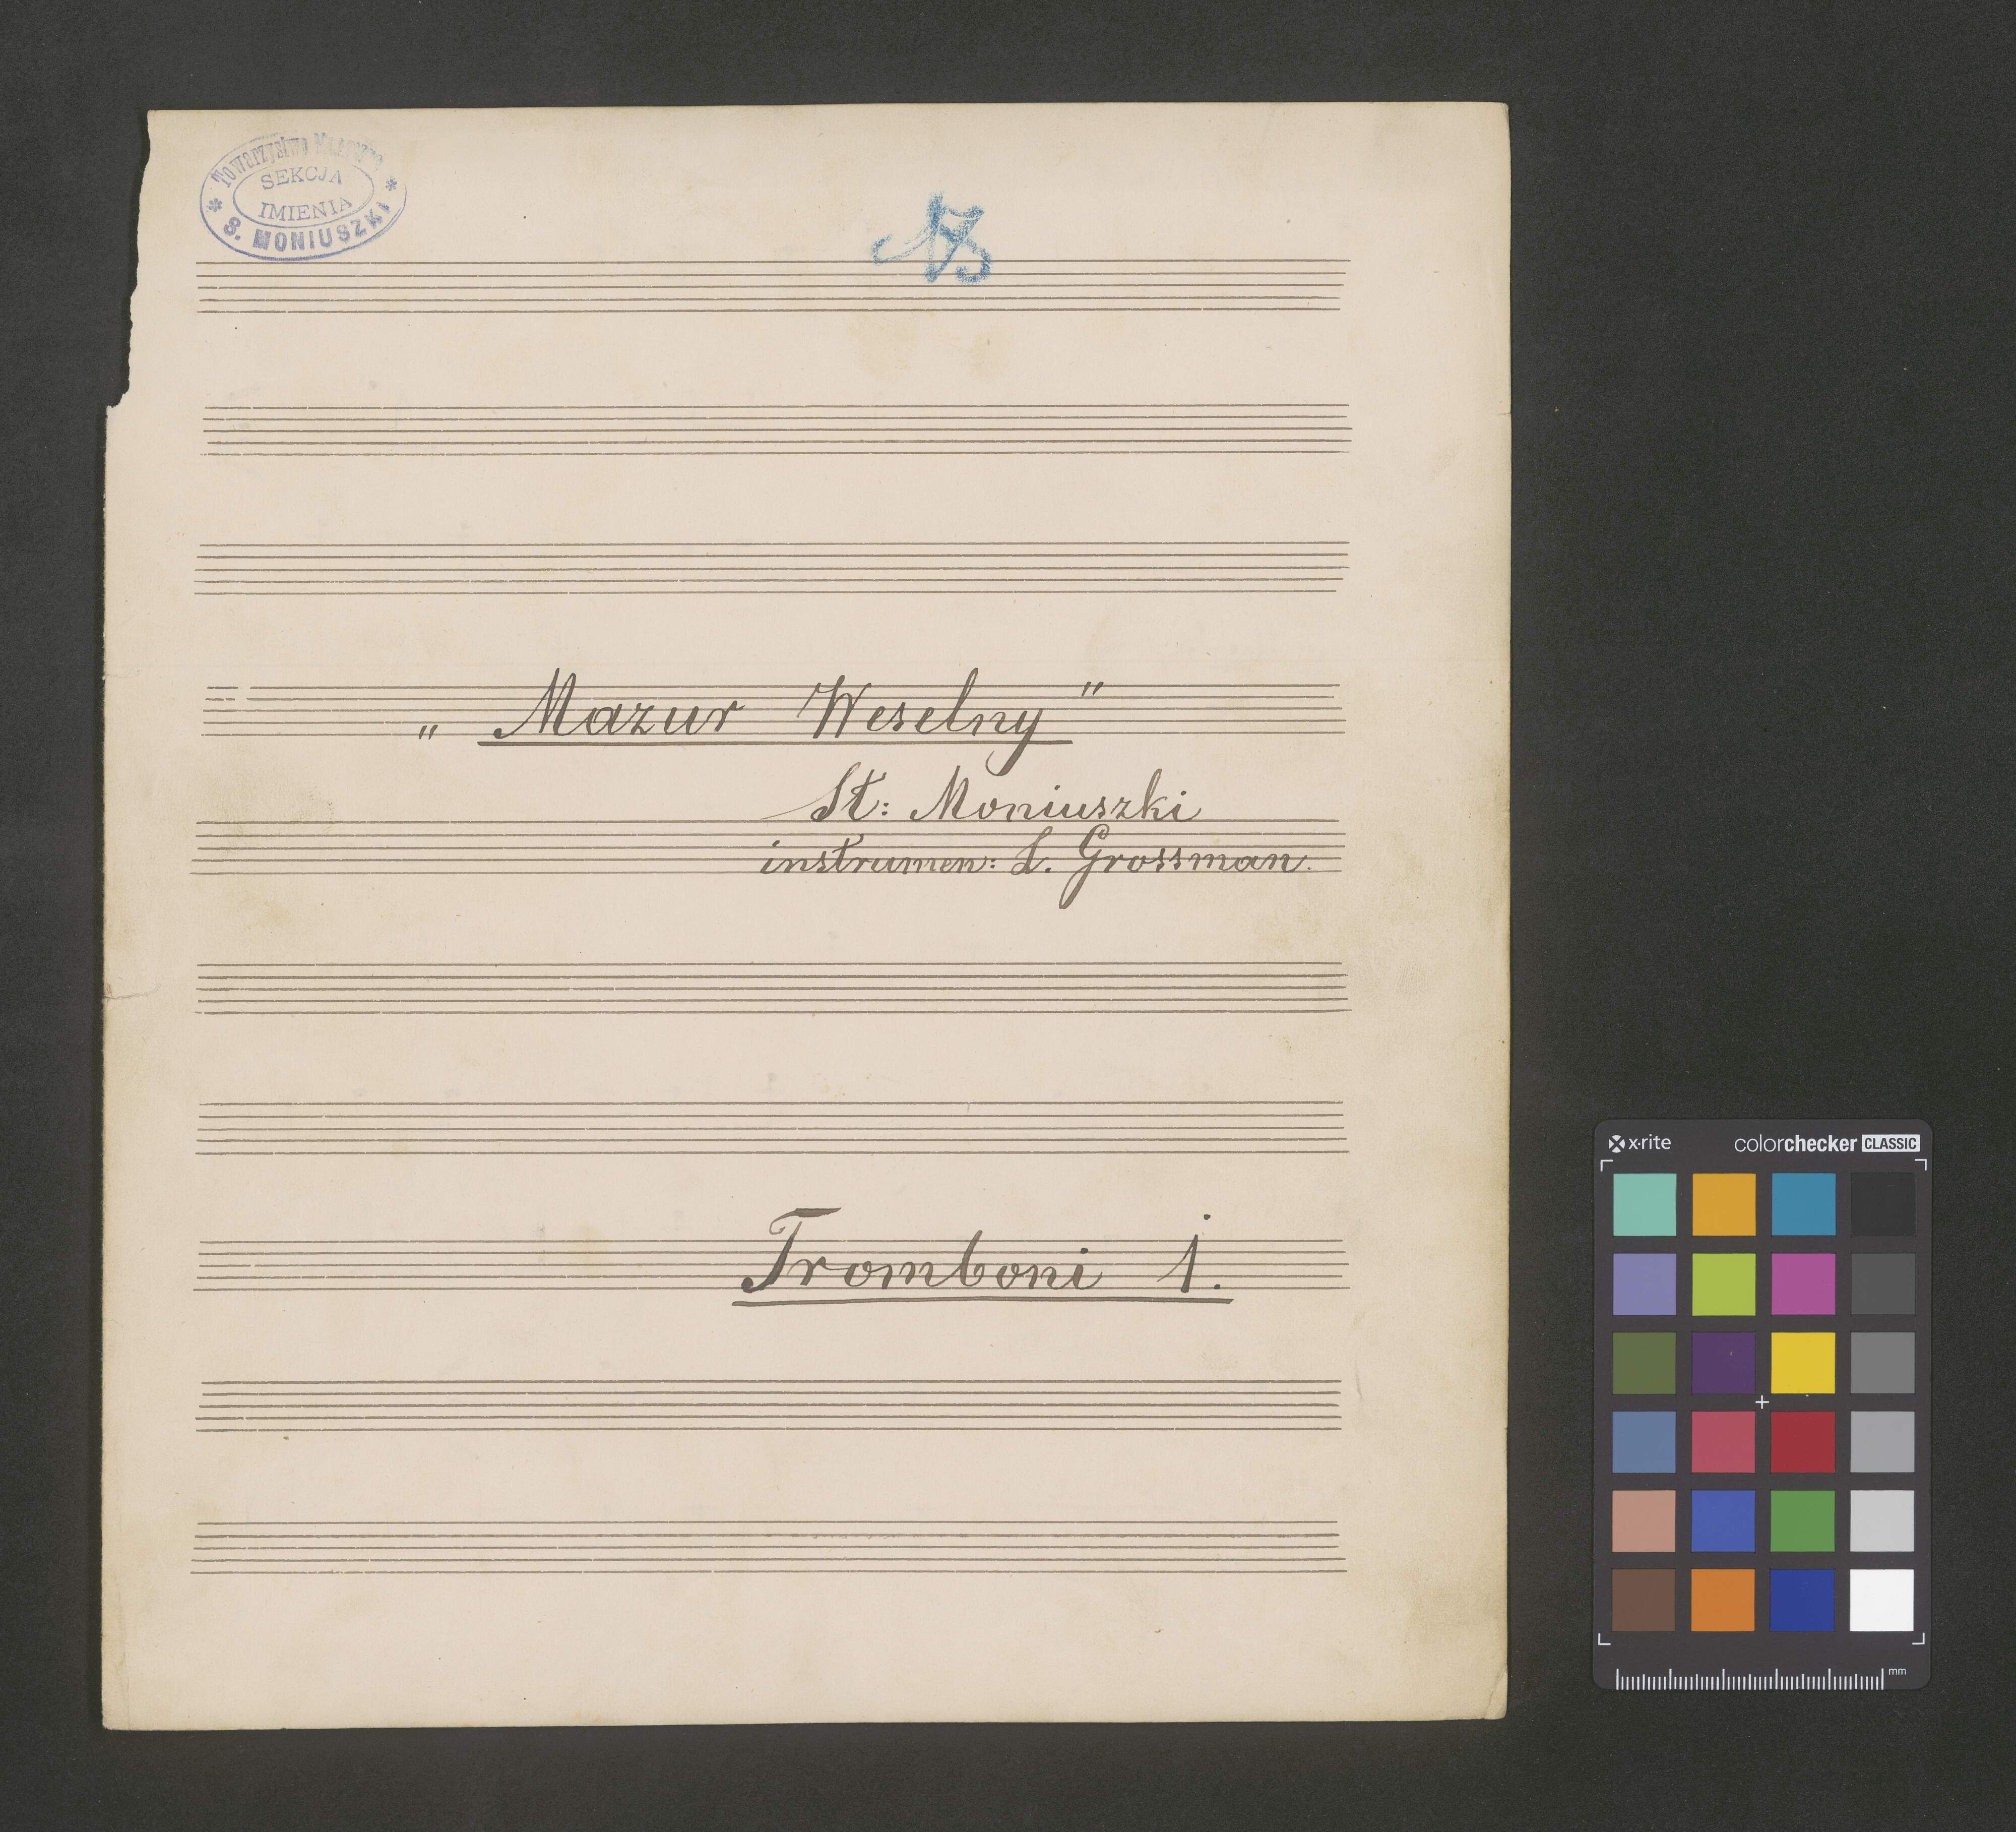 Towarzystwo
SEKCJA
IMIENIA
S. MONIUSZKI
„Mazur Weselny"
St: Moniuszki
instrumen: L. Grossman.
Tromboni 1.
x·rite colorchecker CLASSIC
mm